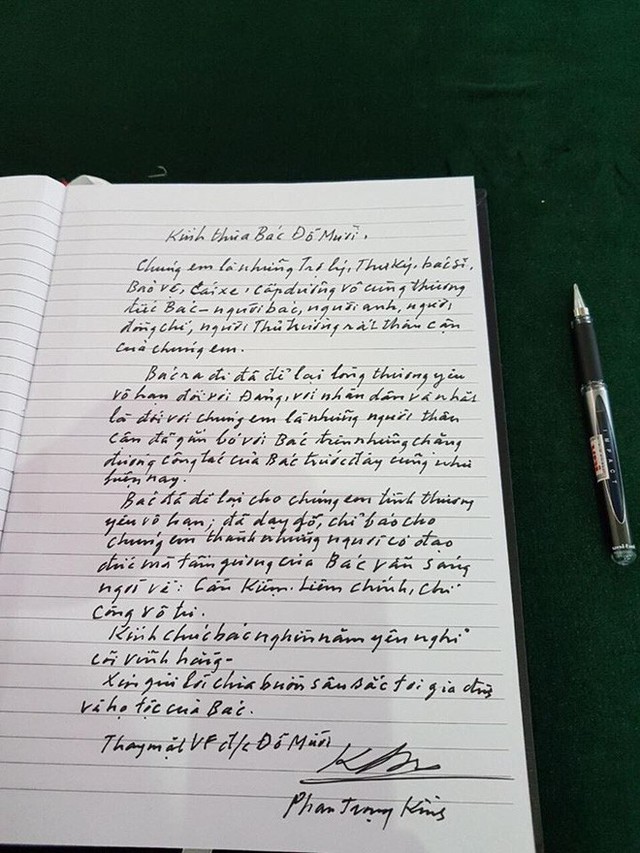 Kính thưa Bác Đỗ Mười,
Chúng em là những Trợ lý, Thư ký, bác sĩ,
Bảo vệ, Lái xe, cấp dưỡng vô cùng thương
tiếc Bác - người bác, người anh, người
đồng chí, người Thủ trưởng rất thân cận
của chúng em.
Bác ra đi đã để lại lòng thương yêu
vô hạn đối với Đảng, với nhân dân và nhất
là đối với chúng em là những người thân
cận đã gắn bó với Bác trên những chặng
đường công tác của Bác trước đây cũng như
hiện nay.
Bác đã để lại cho chúng em tình thương
yêu vô hạn; đã dạy dỗ, chỉ bảo cho
chúng em thành những người có đạo
đức mà tấm gương của Bác vẫn sáng
ngời về: Cần Kiệm. Liêm chính, chí
công vô tư.
Kính chúc bác nghìn năm yên nghỉ
cõi vĩnh hằng -
Xin gửi lời chia buồn sâu sắc tới gia đình
và họ tộc của Bác.
Thay mặt VF đ/c Đỗ Mười
Phan Trọng Kính
IMPACT
uni-ball